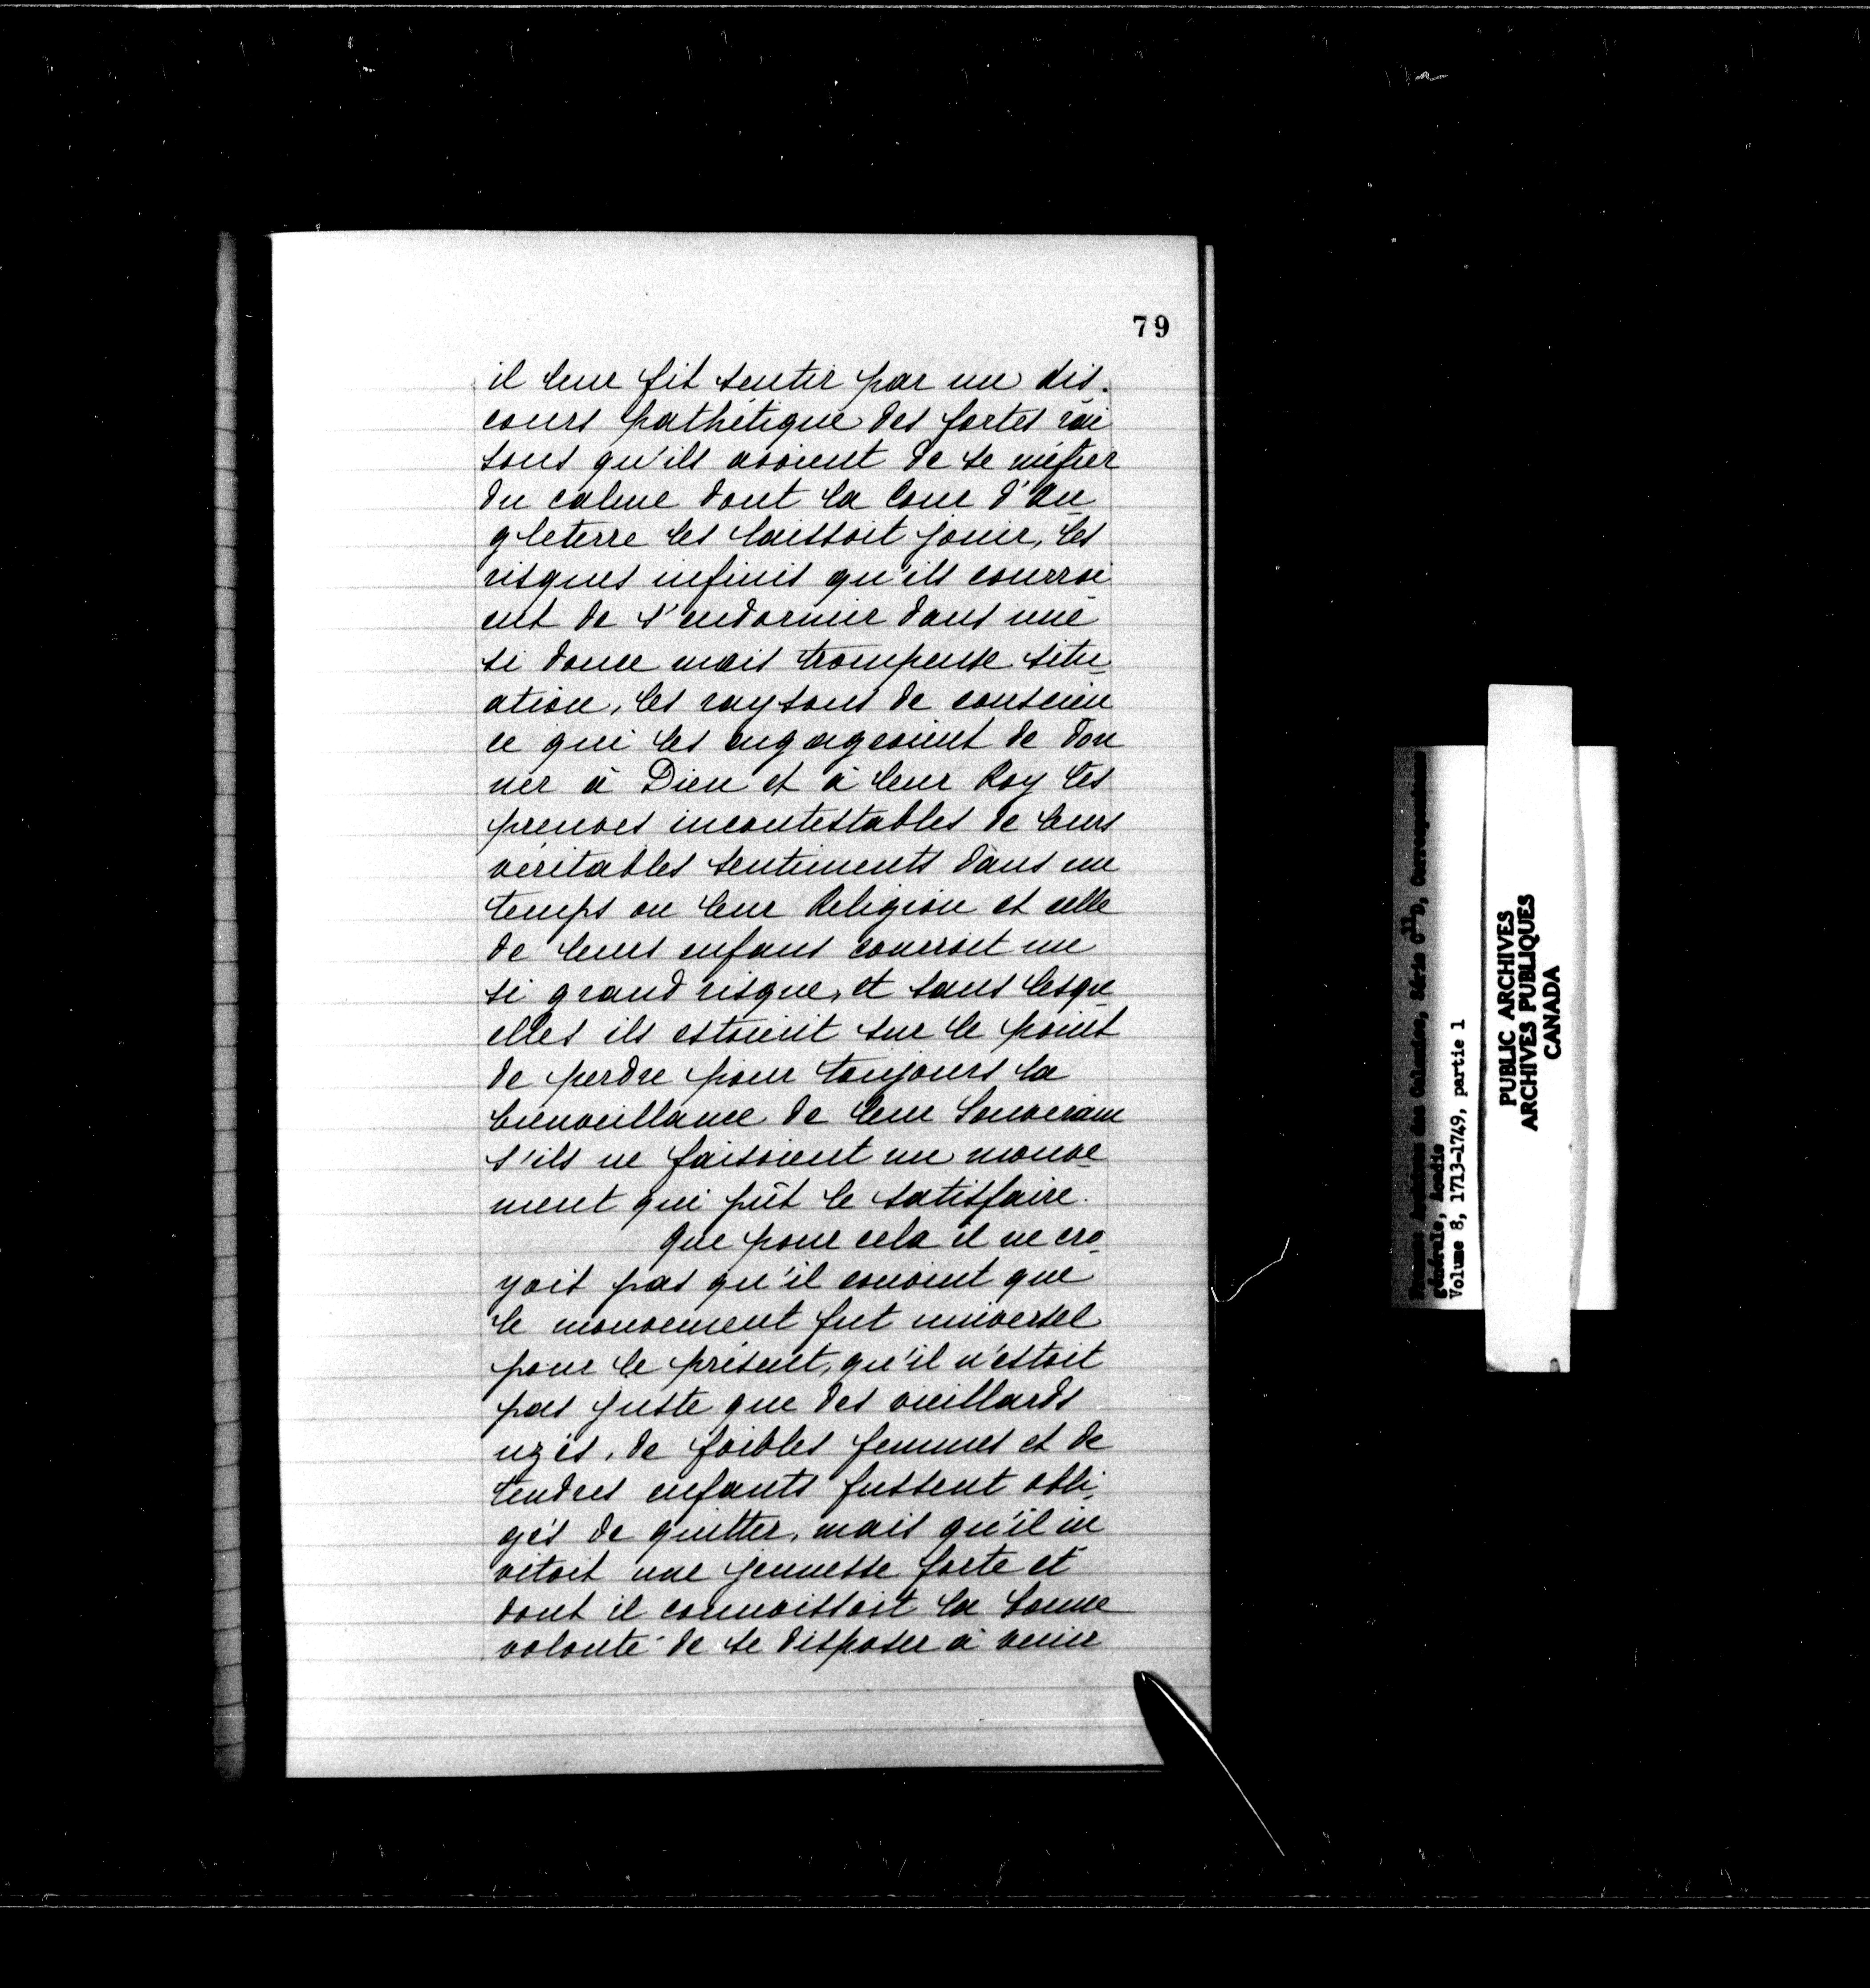 79
il leur fit sentir par un dis-
cours pathétique des fortes rai
sons qu'ils avoient de se méfier
du calme dont la Cour d'An
gleterre les laissoit jouir, les
risques infinis qu'ils courroi
ent de s'endormir dans une
si douce mais trompeuse situ
ation, les raysons de conscien
ce qui les engageoient de don
ner à Dieu et à leur Roy les
preuves incontestables de leurs
véritables sentiments dans un
temps ou leur Religion et celle
de leurs enfans courroit un
si grand risque, et sans lesqu
elles ils estoient sur le point
de perdre pour toujours la
bienveillance de leur Souverain
s'ils ne faisoient un mouve
ment qui pût le satisfaire.
Que pour cela il ne cro
yoit pas qu'il convint que
le mouvement fut universel
pour le présent, qu'il n'estoit
pas juste que des vieillards
uzés, de foibles femmes et de
tendres enfants fussent obli
gés de quitter, mais qu'il in
vitoit une jeunesse forte et
dont il connoissoit la bonne
volonté de se disposer à venir
générale, Acadie
Volume 8, 1713-1749, partie 1
PUBLIC ARCHIVES
ARCHIVES PUBLIQUES
CANADA